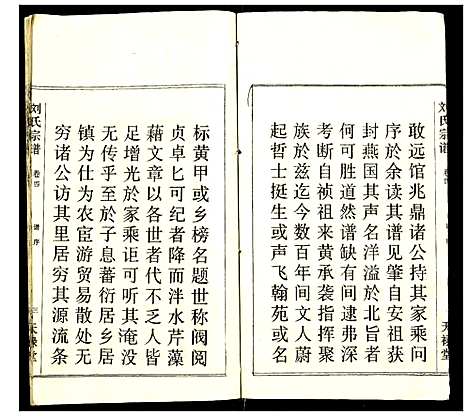 刘氏宗谱
卷四
敢远馆兆鼎诸公持其家乘问
序於余读其谱见肇自安祖获
封燕国其声名洋溢於北旨厚
何可胜道然谱缺有间逮弗深
考断自祯祖来黄承袭指挥聚
族於兹迄今数百年间人文蔚
起哲士挺生或声飞翰苑或名
天禄堂
标黄甲或乡榜名题世称阀阅
贞卓匕可纪者降而泮水芹藻
藉文章以各世者代不乏人皆
足增光於家乘讵可听其淹没
无传乎至於子息蕃衍居乡居
镇为仕为农宦游贸易散处无
穷诸公访其里居穷其源流条
刘氏宗谱
卷四
谱序
三
天禄堂